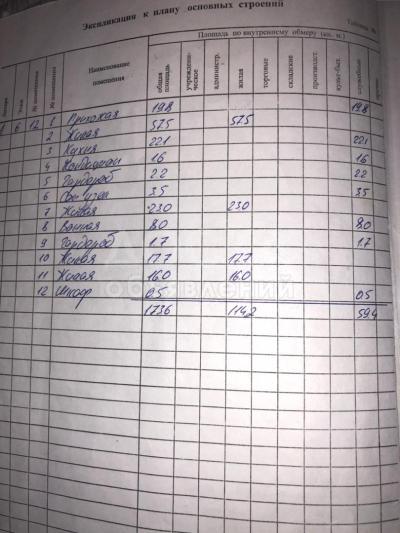 Экспликация к плану основных строений
Площадь по внутреннему обмеру (кв. м.)
Литера
Этаж
№ помещения
№ помещения
Наименование помещения
общая площадь
учрежденческое
администр.
жилая
торговые
складские
производст.
культ-быт.
служебные
6 12 1 Прихожая 19.8 19.8
2 Жилая 57.5 57.5
3 Кухня 22.1 22.1
4 1.6 1.6
5 Гардероб 2.2 2.2
6 Сан. узел 3.5 3.5
7 Жилая 23.0 23.0
8 Ванная 8.0 8.0
9 Гардероб 1.7 1.7
10 Жилая 17.7 17.7
11 Жилая 16.0 16.0
12 Шкаф 0.5 0.5
173.6 114.2 59.4
ОБЪЯВЛЕНИЙ